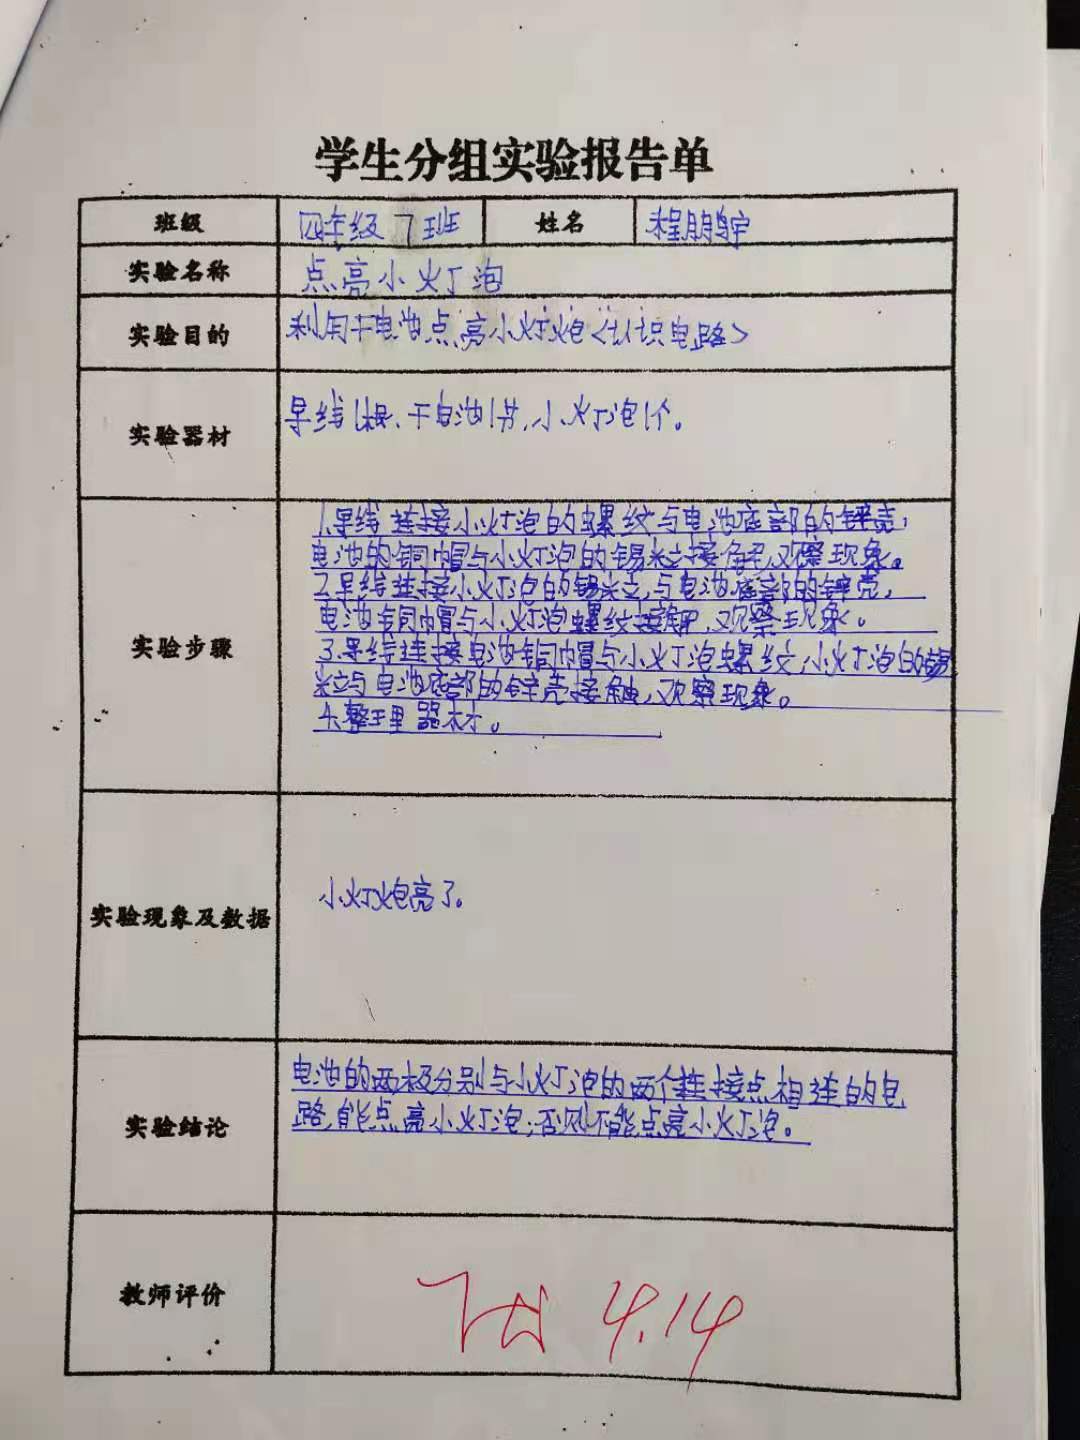 学生分组实验报告单
班级 四年级7班 姓名 程鹏宇
实验名称 点亮小灯泡
实验目的 利用干电池点亮小灯炮<认识电路>
实验器材 导线1根、干电池1节,小灯泡1个。
实验步骤
1.导线连接小灯泡的螺纹与电池底部的锌壳,
电池的铜帽与小灯泡的锡粒接触,观察现象。
2.导线连接小灯泡的锡粒,与电池底部的锌壳,
电池铜帽与小灯泡螺纹接触,观察现象。
3.导线连接电池铜帽与小灯泡螺纹,小灯泡的锡
粒与电池底部的锌壳接触,观察现象。
4.整理器材。
实验现象及数据 小灯炮亮了。
实验结论
电池的两极分别与小灯泡的两个连接点相连的电
路,能点亮小灯泡;否则不能点亮小灯泡。
教师评价 4.14